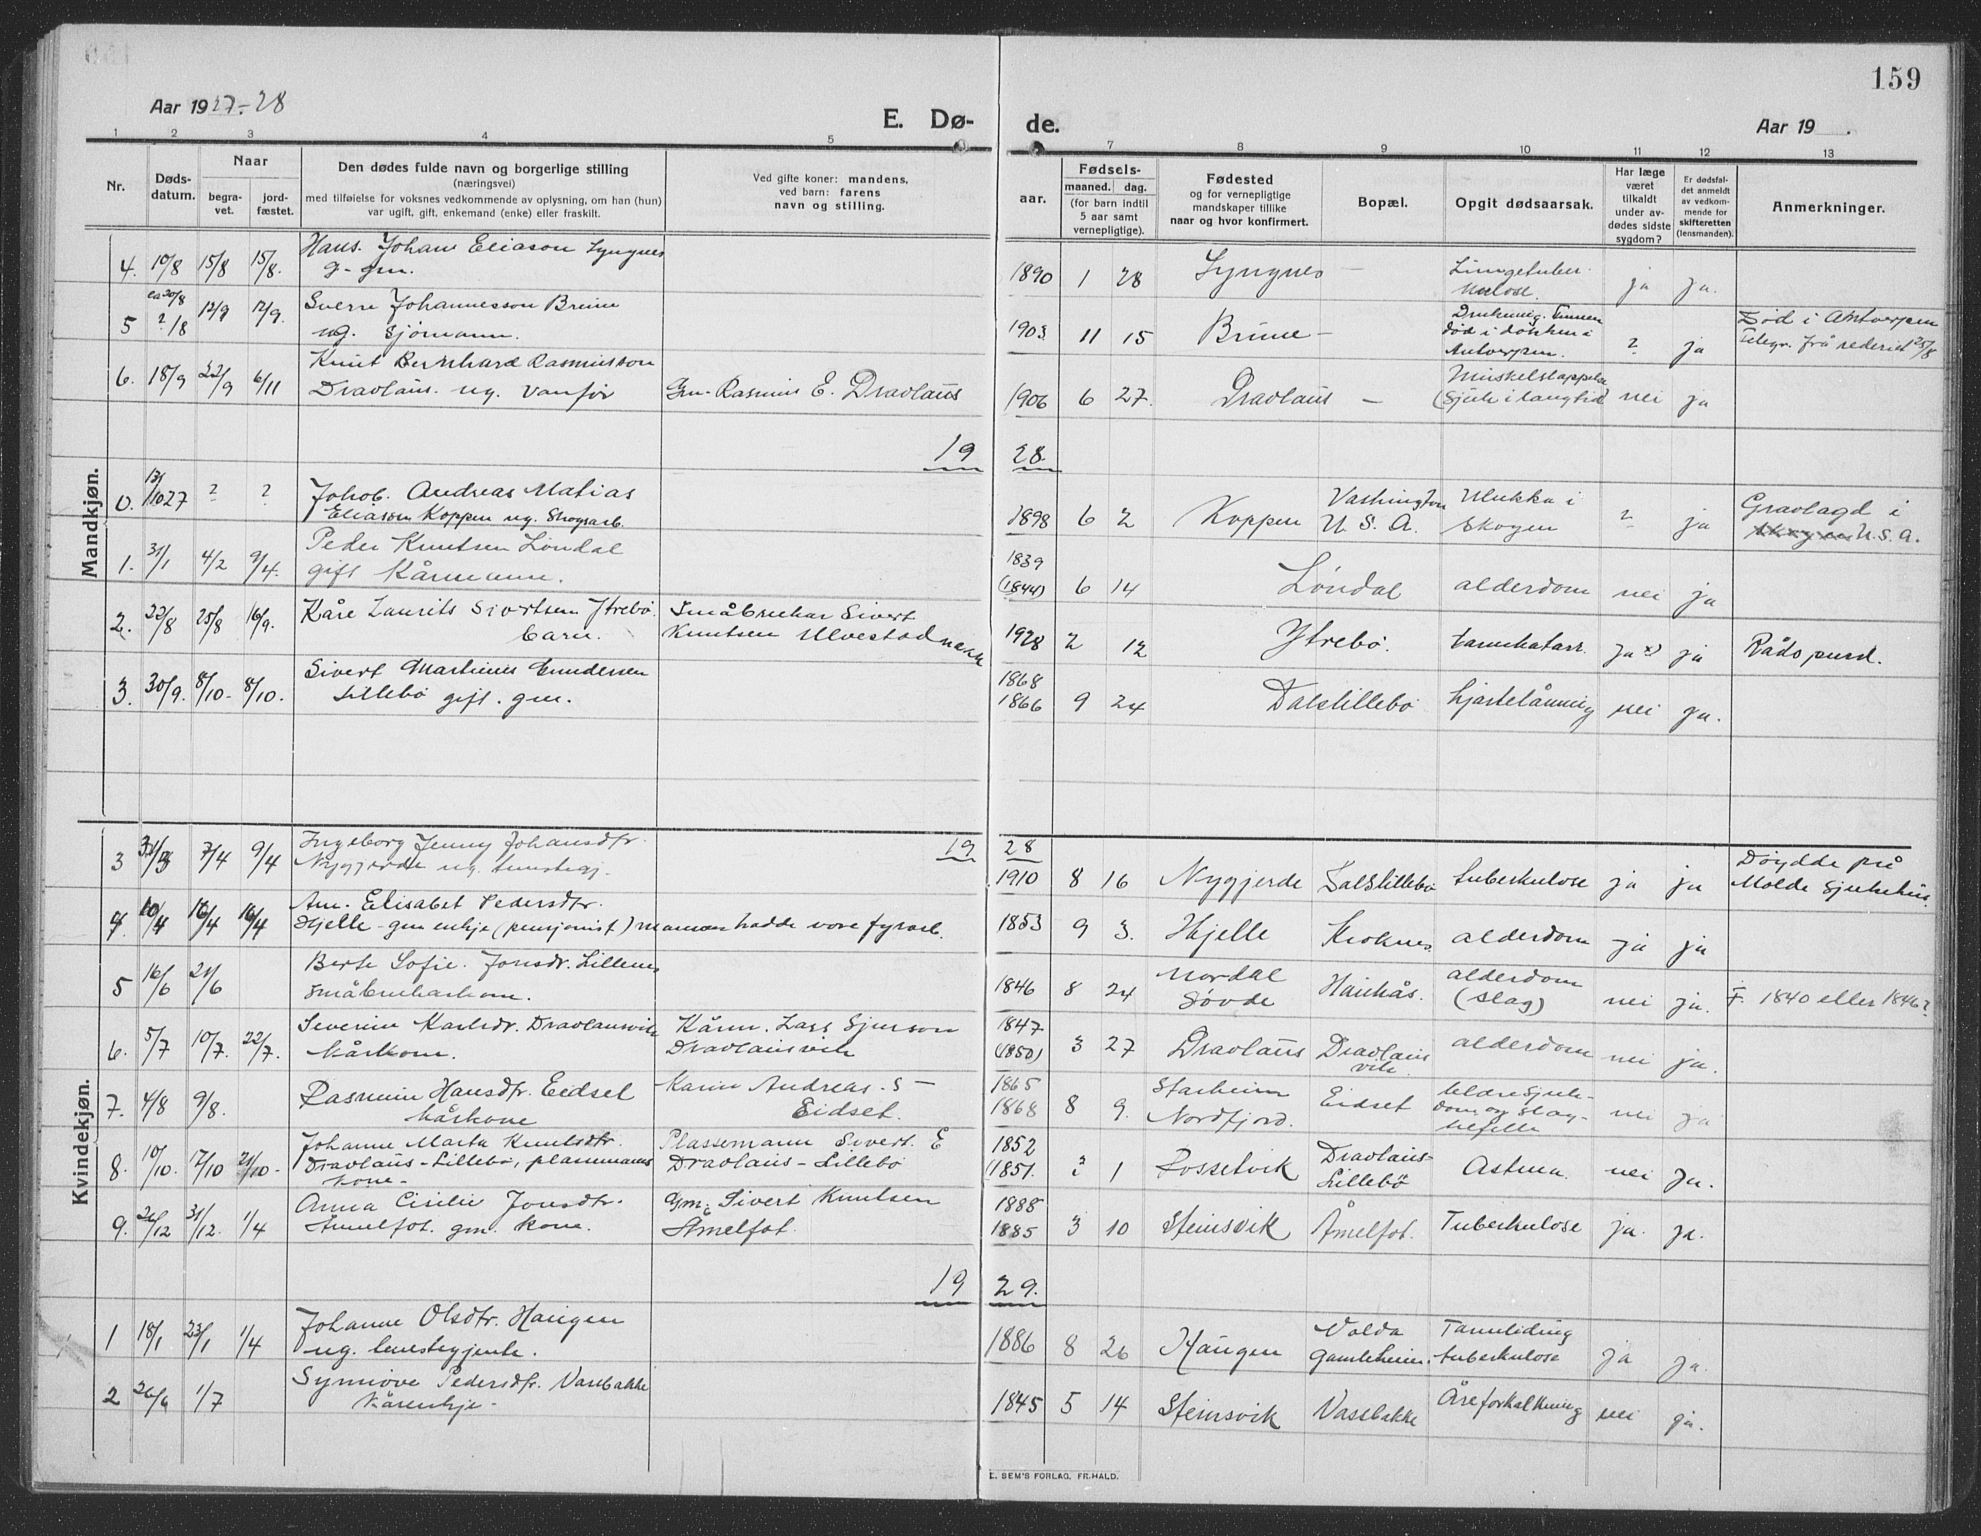 159
Aar 1927-28
E. Dø-
de.
Aar 19
1 2 3 4 5 7 8 9 10 11 12 13
Nr.
Døds-
datum.
Naar
begra-
vet.
jord-
fæstet.
Den dødes fulde navn og borgerlige stilling
(næringsvei)
med tilføielse for voksnes vedkommende av oplysning, om han (hun)
var ugift, gift, enkemand (enke) eller fraskilt.
Ved gifte koner: mandens,
ved barn: farens
navn og stilling.
aar.
Fødsels-
maaned. dag.
(for barn indtil
5 aar samt
vernepligtige).
Fødested
og for vernepligtige
mandskaper tillike
naar og hvor konfirmert.
Bopæl.
Opgit dødsaarsak.
Har læge
været
tilkaldt
under av-
dødes sidste
sygdom?
Er dødsfal-
det anmeldt
av vedkom-
mende for
skifteretten
(lensmanden).
Anmerkninger.
Mandkjøn.
4. 10/8 15/8 15/8. Hans Johan Eliason Lyngnes
g. gm.
1890 1 28 Lyngnes - Lungetuber-
kulose. ja ja.
5 ca 20/8
?/8 12/9 12/9. Sverre Johannesson Brune
ug. sjømann.
1903 11 15 Brune - Drukning. Funnen
død i dokken i
Antverpen. ? ja Død i Antverpen
Telegr. frå rederiet 25/8
6. 18/9 22/9 6/11 Knut Bernhard Rasmusson
Dravlaus. ug. vanfør Gm. Rasmus E. Dravlaus
1906 6 27. Dravlaus - Muskelslappelse
(Sjuk i lang tid) nei ja
19 28
0. 13/10 27 ? ? Johob. Andreas Matias
Eliason Koppen ug. Skogsarb.
1898 6 2 Koppen Vashington
U. S. A. Ulukka i
skogen ? ja Gravlagd i
U.S.A.
1. 31/1 4/2 9/4. Peder Knutsen Løndal
gift kårmann.
1839
(1844) 6 14 Løndal alderdom nei ja
2. 22/8 25/8 16/9. Kåre Laurits Sivertsen Ytrebø.
barn. Småbrukar Sivert
Knutsen Ulvestad
1928 2 12 Ytrebø. tarmkatarr. Ja x) ja
3. 30/9. 8/10- 8/10. Sivert Martinus Gundersen
Lillebø gift. gm.
1868
1866 9 24 Dalslillebø hjartelåming nei ja.
Kvindekjøn.
19 28
3 31/3 7/4 9/4 Ingeborg Jenny Johansdtr.
Nygjerde ug. tenestegj.
1910 8 16 Nygjerde Dalslillebø tuberkulose ja ja Døydde på
Molde Sjukehus.
4. 10/4 16/4 16/4 An. Elisabet Pedersdtr.
Hjelle - gm enkje (pensjonist) mannen hadde vore fyrarb.
1853 9 3. Hjelle Kroknes alderdom ja ja
5 16/6 21/6 Berte Sofie Jonsdr. Lillenes
småbrukarkone.
1846 8 24 Nordal
Søvde Haukås. alderdom
(slag) nei ja. F. 1840 eller 1846?
6. 5/7 10/7. 22/7. Severine Karlsdr. Dravlausvik
kårkone. Kårm. Lars Sjurson
Dravlausvik
1847
(1850) 3 27 Dravlaus Dravlaus
vik. alderdom nei ja.
7. 4/8 9/8. Rasmine Hansdtr. Eidset
kårkone Andreas. S -
Eidset.
1865
1868 8 9. Starheim
Nordfjord. Eidset nei ja
8. 10/10. 17/10 21/10. Johanne Marta Knutsdtr.
Dravlaus-Lillebø, plassmanns
kone- Plassemann Sivert. E
Dravlaus-Lillebø
1852
(1851. ? 1 Rossetvik Dravlaus-
Lillebø Astma. nei Ja.
9. 26/12 31/12. 1/4 Anna Cisilie Jonsdtr.
Åmelfot. gm. kone. Gm. Sivert Knutsen
Åmelfot.
1888
1885 3 10 Steinsvik Åmelfot. Tuberkulose ja. ja.
19 29.
1 18/1 23/1 1/4 Johanne Olsdtr. Haugen
ug. tenestegjente.
1886 8 26 Haugen Volda
Gamleheim. Tannliding
tuberkulose ja ja.
2 26/6 1/7 Synnøve Pedersdtr. Vassbakke
kårenkje.
1845 5 14 Steinsvik Vassbakke Åreforkalkning nei ja.
E. SEM'S FORLAG, FR.HALD.